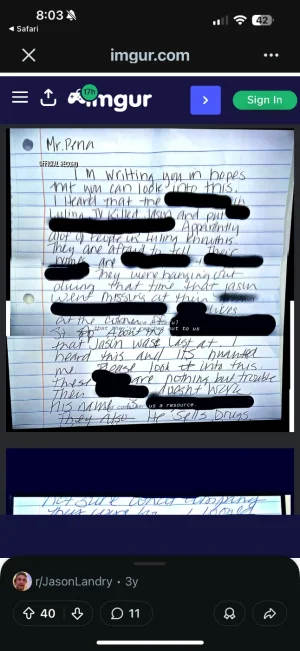 8:03
42
Safari
imgur.com
17h
imgur
Sign In
Mr. Penn
OFFICIAL SESSION
I'm writting you in hopes
that you can look into this.
I Heard that the in
Luling TX killed Jasin and put
Apparantly
alot of people in Luling know this.
They are afraid to tell. Their
names are
They were hanging out
during that time that Jasin
went missing at their
lives
at the corner
St. about the out to us
that Jasin was last at. I
heard this and its haunted
me. Please look into this
these are nothing but trouble
Their doesnt work
His name is us a resource.
They Also He sells Drugs.
not sure what
they were
r/JasonLandry • 3y
40
11